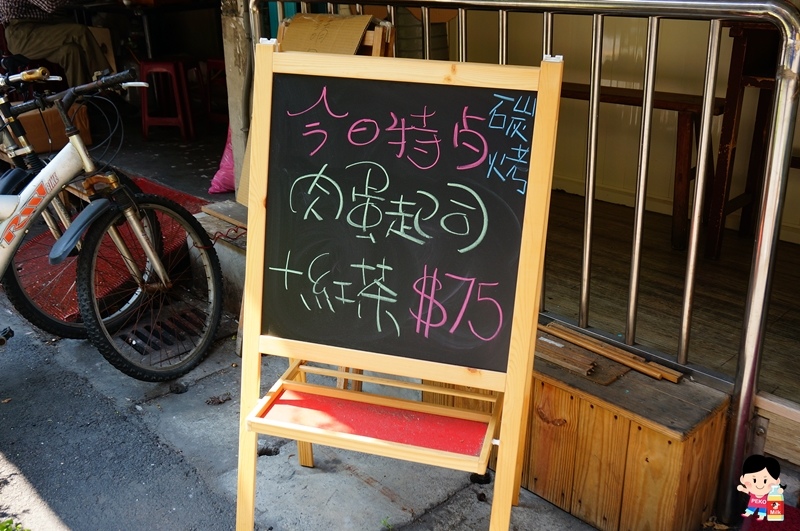 今日特点
碳烤
肉蛋起司
+紅茶 $75
RN
PEKO
Milk